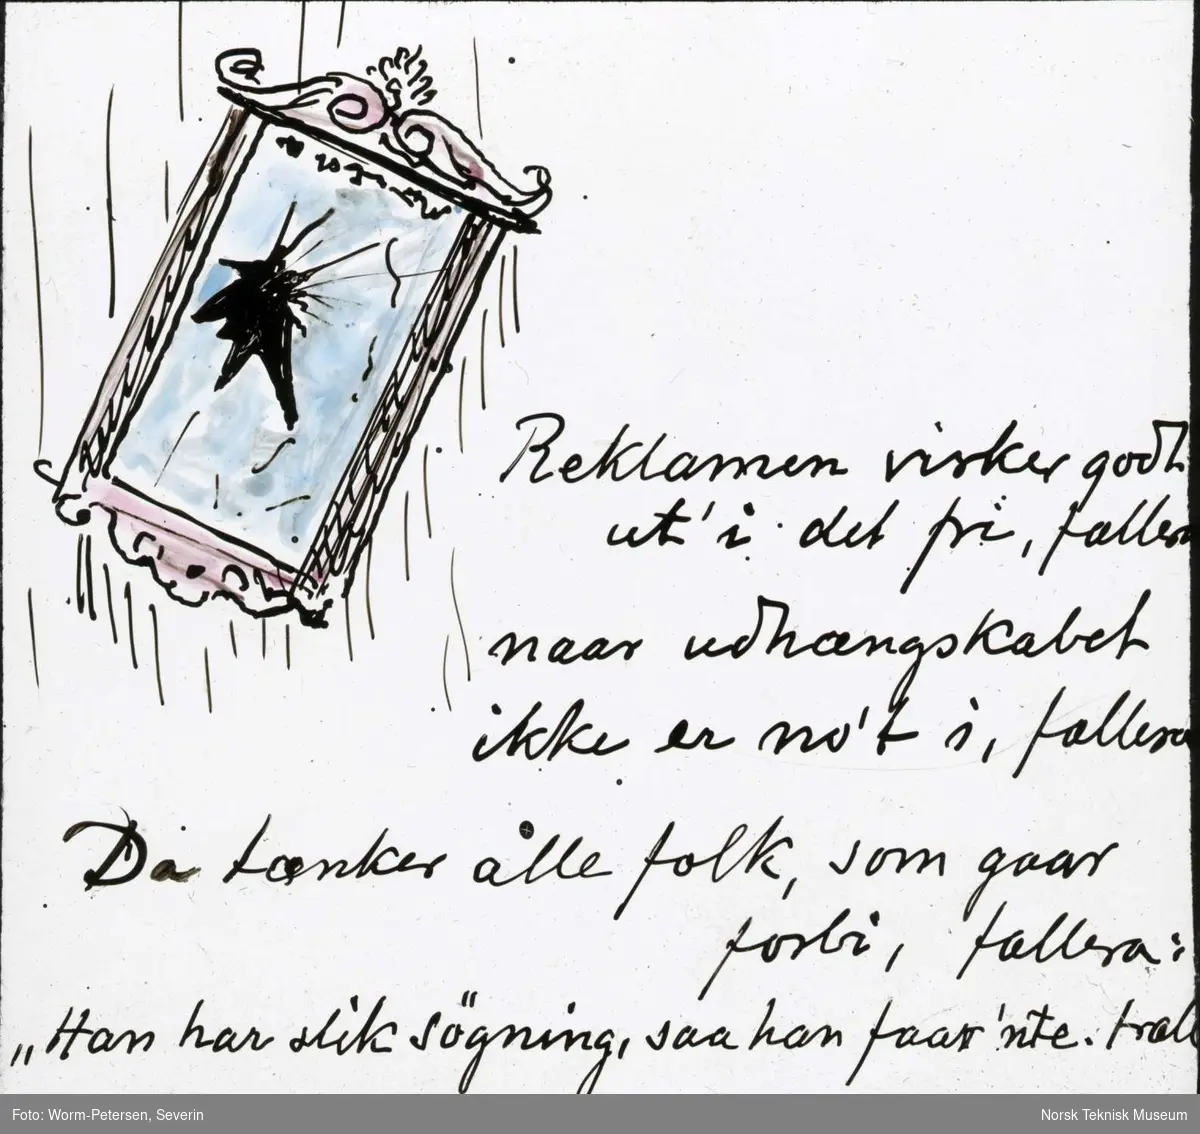 Reklamen virker godt
ut' i det fri, fallera
naar udhængskabet
ikke er no't i, fallera
Da tænker alle folk, som gaar
forbi, fallera:
„Han har slik søgning, saa han faar 'nte. tral
Foto: Worm-Petersen, Severin
Norsk Teknisk Museum